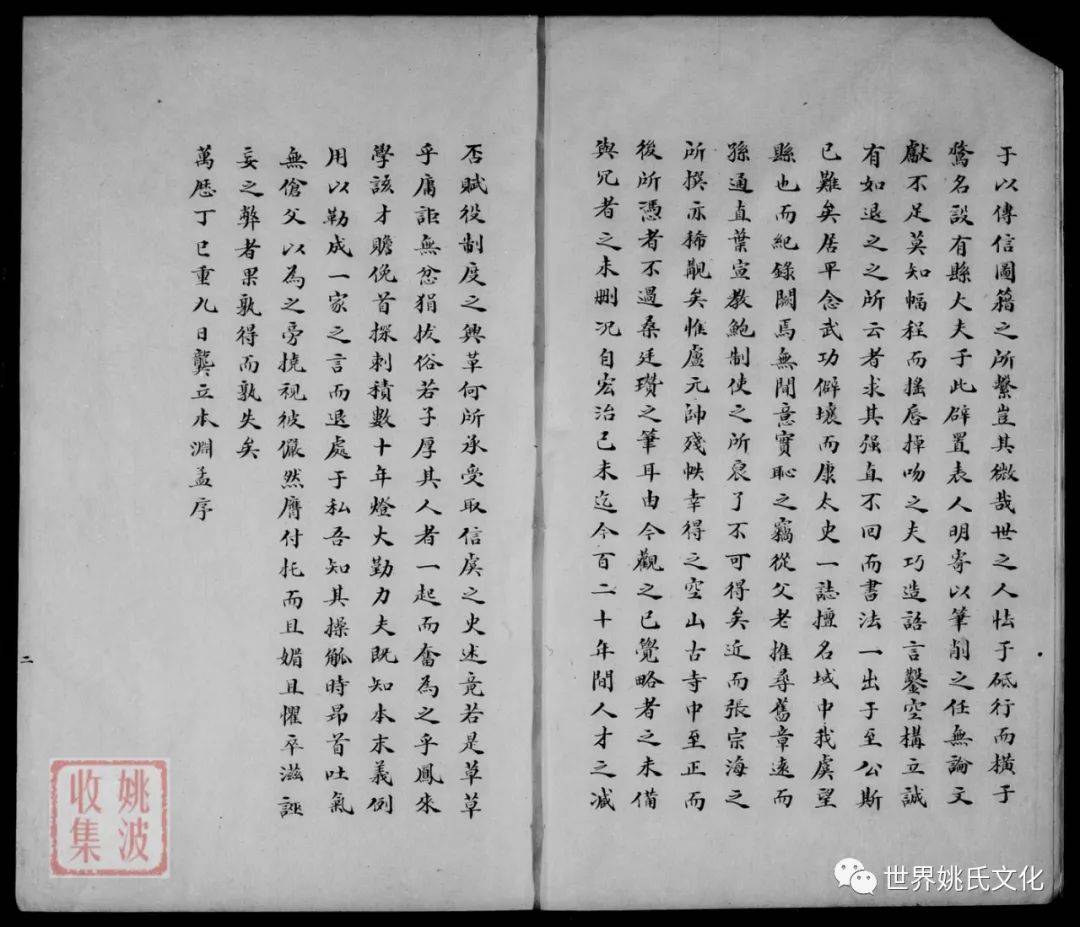 于以傳信圖籍之所繫豈其微哉世之人怯于砥行而橫于
騖名設有縣大夫于此辟置表人明寄以筆削之任無論文
獻不足莫知幅程而搖唇掉吻之夫巧造語言鑿空構立誠
有如退之之所云者求其强直不回而書法一出于至公斯
已難矣居平念武功僻壤而康太史一誌擅名域中我虞望
縣也而紀錄闕焉無聞意實恥之竊從父老推尋舊章遠而
孫通直葉宣教鮑制使之所裒了不可得矣近而張宗海之
所撰亦稀覯矣惟盧元帥殘帙幸得之空山古寺中至正而
後所憑者不過桑廷瓚之筆耳由今觀之已覺略者之未備
與冗者之未刪況自宏治己未迄今百二十年間人才之減
否賦役制度之興革何所承受取信虞之史述竟若是草草
乎庸詎無忿狷拔俗若子厚其人者一起而奮為之乎鳳來
學該才贍俛首探刺積數十年燈火勤力夫既知本末義例
用以勒成一家之言而退處于私吾知其操觚時昂首吐氣
無傖父以為之旁撓視彼儼然膺付托而且媚且懼卒滋誣
妄之弊者果孰得而孰失矣
萬歷丁巳重九日龔立本淵孟序
二
姚波
收集
世界姚氏文化